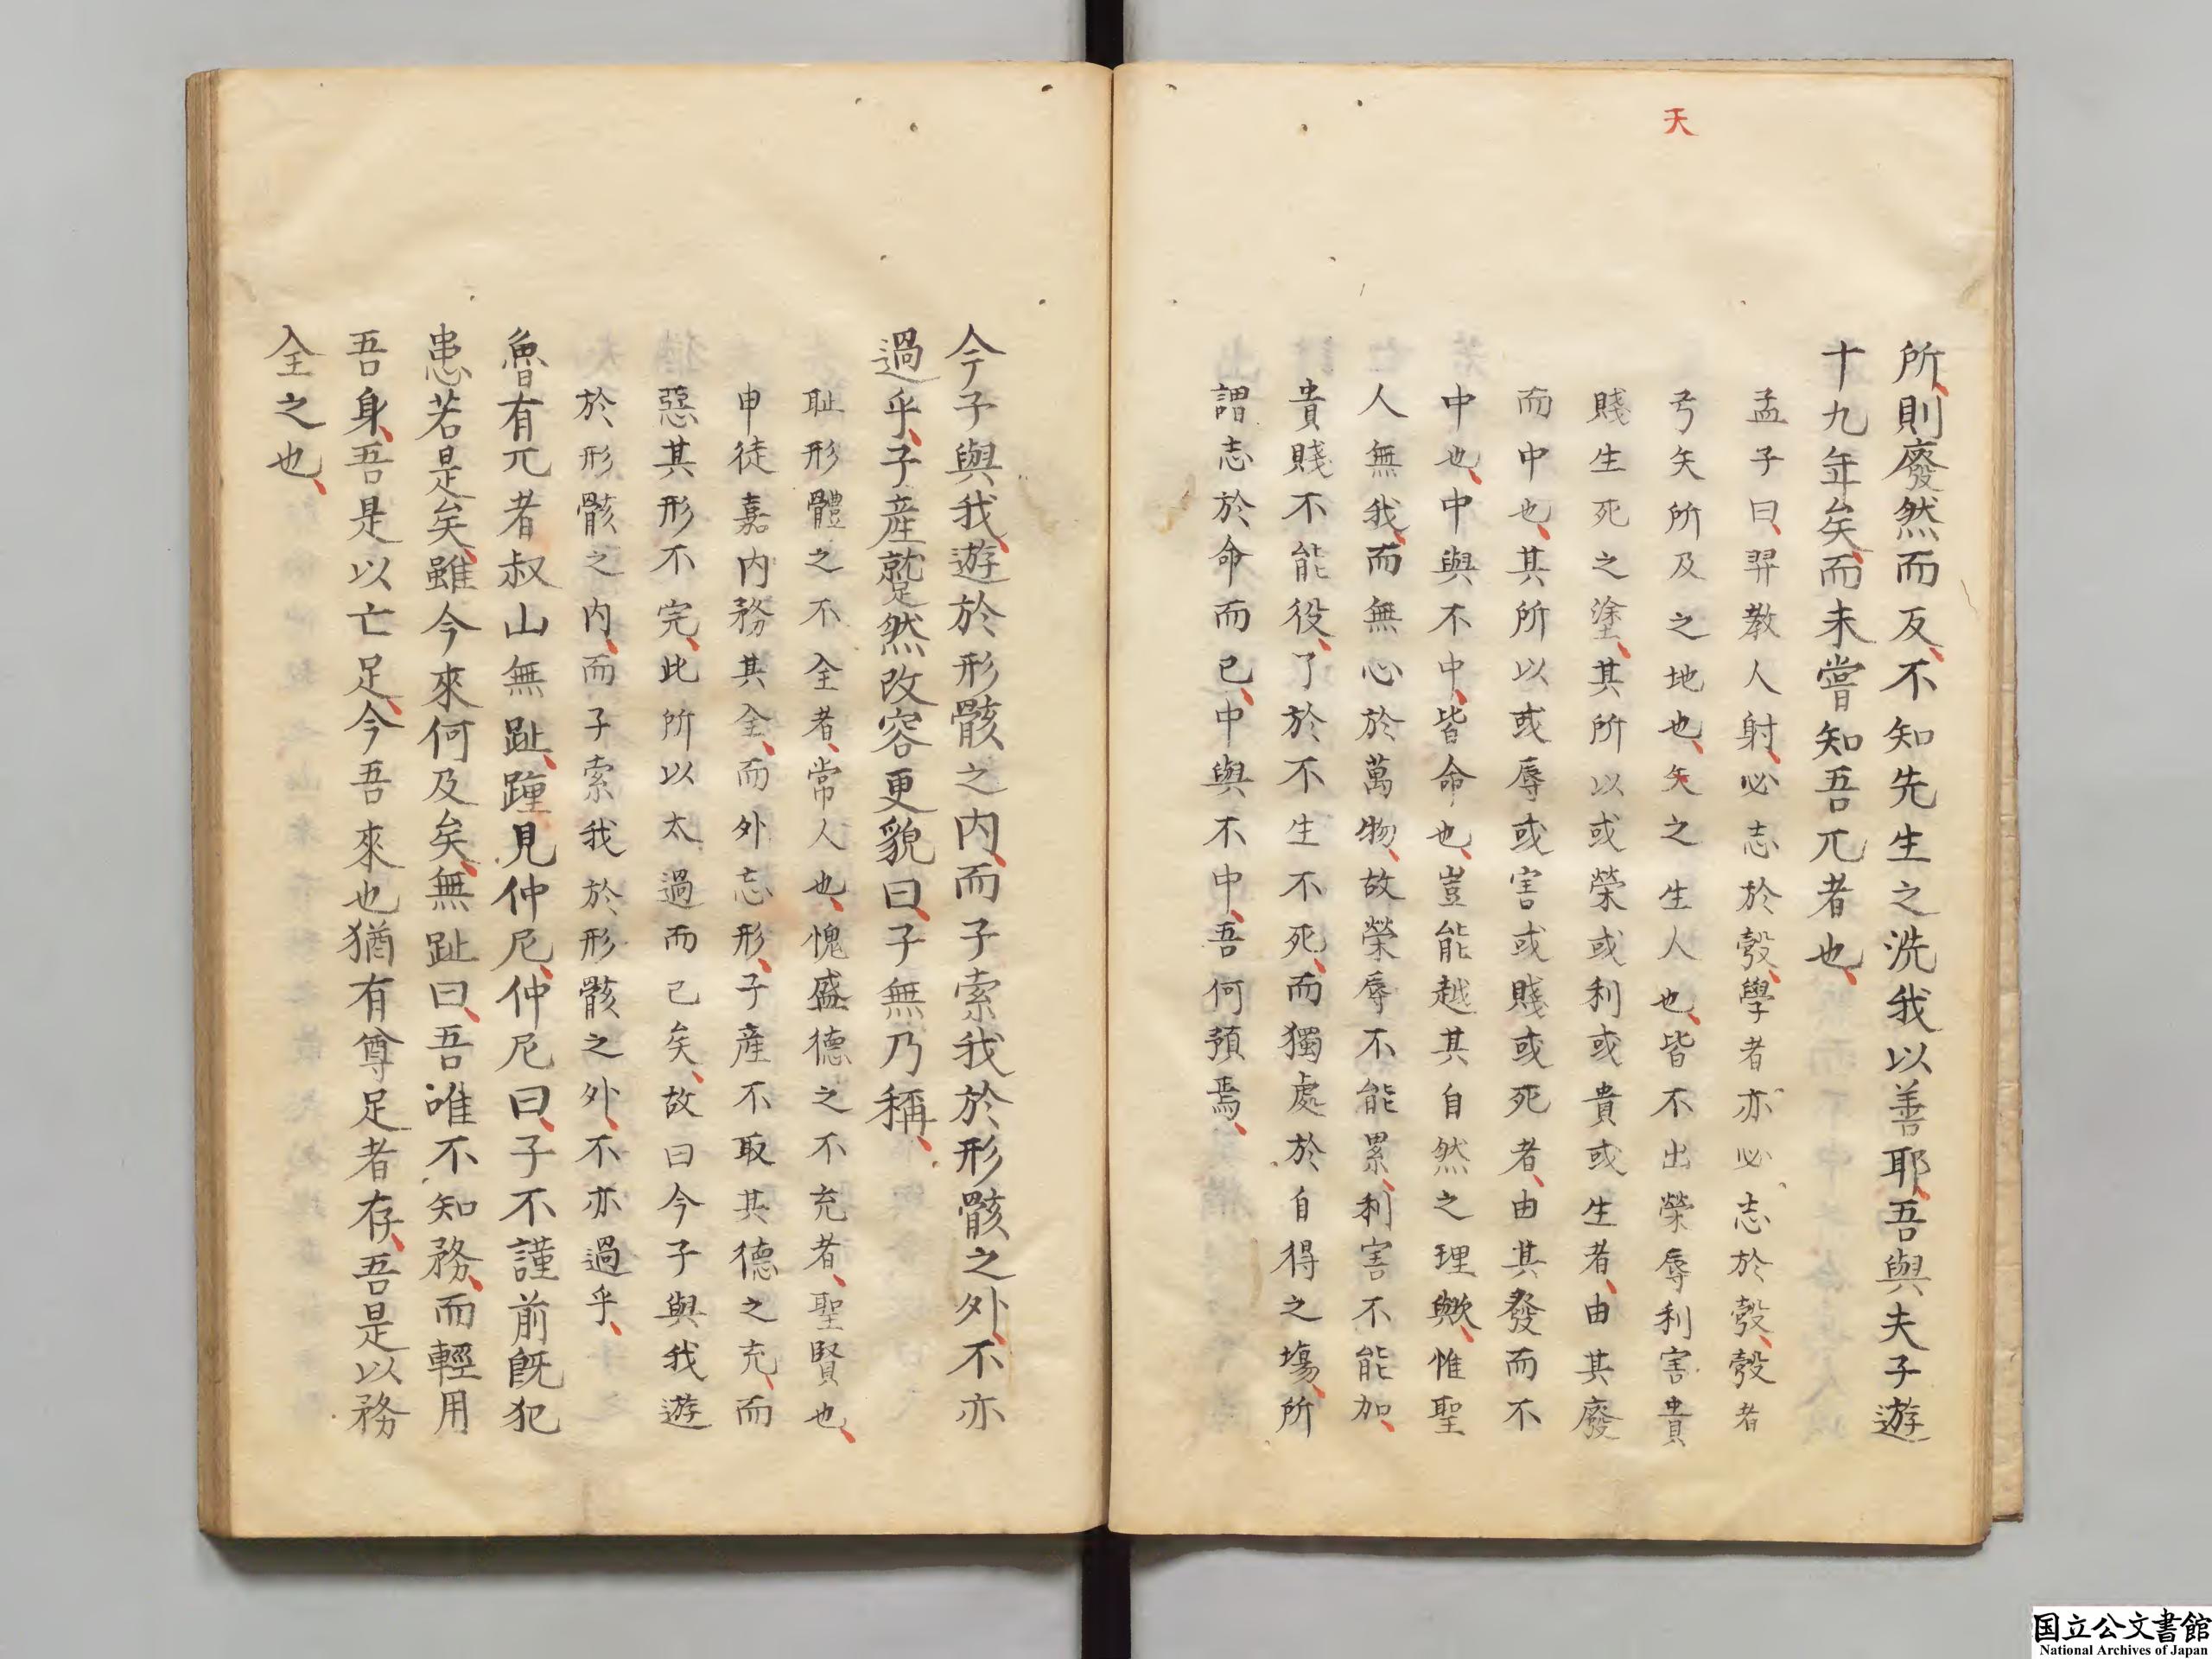 天
所則廢然而反不知先生之洗我以善耶吾與夫子遊
十九年矣而未嘗知吾兀者也
孟子曰羿教人射必志於彀學者亦必志於彀彀者
弓矢所及之地也矢之生人也皆不出榮辱利害貴
賤生死之塗其所以或榮或利或貴或生者由其廢
而中也其所以或辱或害或賤或死者由其發而不
中也中與不中皆命也豈能越其自然之理歟惟聖
人無我而無心於萬物故榮辱不能累利害不能加
貴賤不能役了於不生不死而獨處於自得之場所
謂志於命而已中與不中吾何預焉
今子與我遊於形骸之内而子索我於形骸之外不亦
過乎子産蹵然改容更貌曰子無乃稱
耻形體之不全者常人也愧盛德之不充者聖賢也
申徒嘉内務其全而外忘形子産不取其德之充而
惡其形不完此所以太過而已矣故曰今子與我遊
於形骸之内而子索我於形骸之外不亦過乎
魯有兀者叔山無趾踵見仲尼仲尼曰子不謹前旣犯
患若是矣雖今來何及矣無趾曰吾唯不知務而輕用
吾身吾是以亡足今吾來也猶有尊足者存吾是以務
全之也
国立公文書館
National Archives of Japan